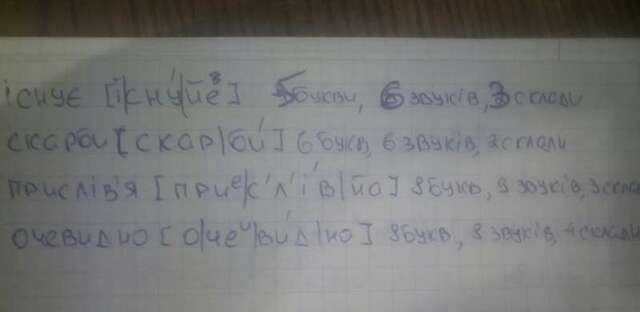 існує [і|сну́|йеᵌ] 5букви, 6 звуків, 3 склади
скарби [скар|би́] 6 букв, 6 звуків, 2 склади
прислів'я [приᵉ|с'л'і́в|йа] 8букв, 9 звуків, 3 склади
очевидно [о|чеᵘ|ви́д|но] 8букв., 8 звуків, 4 склади